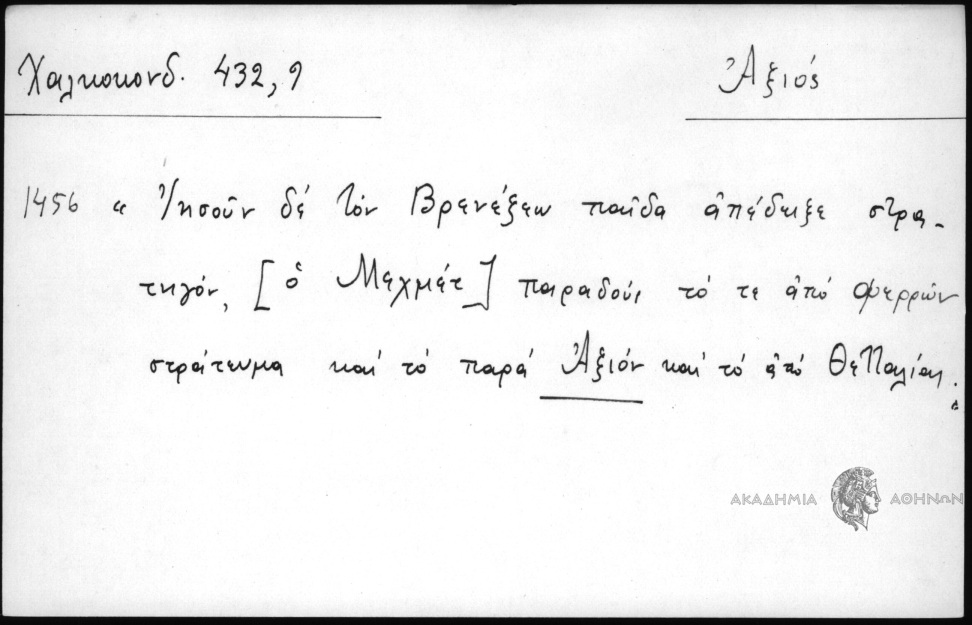 Χαλκοκονδ. 432,9
Ἀξιός
1456 « Ἰησοῦν δέ τόν Βρενέζεω παῖδα ἀπέδειξε στρα-
τηγόν, [ὁ Μεχμέτ] παραδούς τό τε ἀπό Φερρῶν
στράτευμα καί τό παρά Ἀξιόν καί τό ἀπό Θετταλίας.»
ΑΚΑΔΗΜΙΑ ΑΘΗΝΩΝ